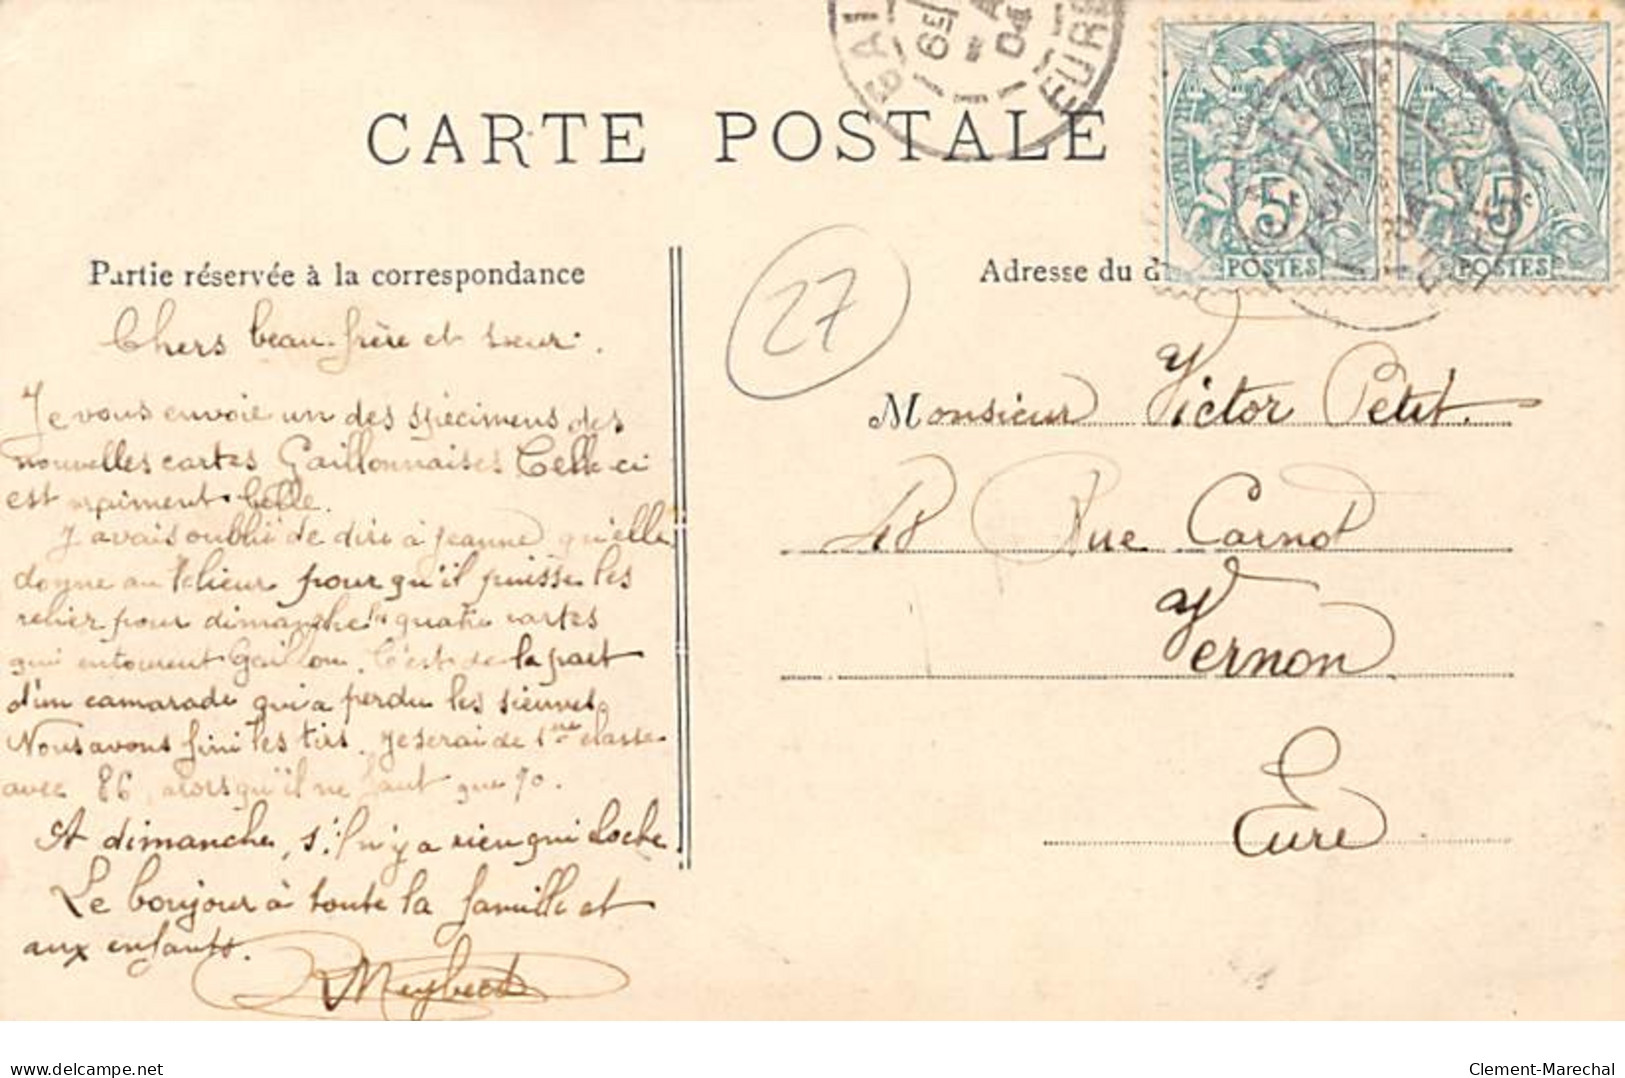 GAILLON
EURE
04
CARTE POSTALE
RÉPUBLIQUE FRANÇAISE
5c
POSTES
5c
POSTES
27
Partie réservée à la correspondance
Adresse du d
Chers beau-frère et sœur.
Je vous envoie un des spécimens des
nouvelles cartes Gaillonnaises Celle-ci
est vraiment belle.
J'avais oublié de dire à Jeanne qu'elle
donne au relieur pour qu'il puisse les
relier pour dimanche les quatre cartes
qui entourent Gaillon. C'est de la part
d'un camarade qui a perdu les siennes.
Nous avons fini les tirs. Je serai de 1ère classe
avec 86, alors qu'il ne faut que 70.
A dimanche, s'il n'y a rien qui cloche.
Le bonjour à toute la famille et
aux enfants.
Monsieur Victor Petit.
48 Rue Carnot
Vernon
Eure
www.delcampe.net
Clement-Marechal